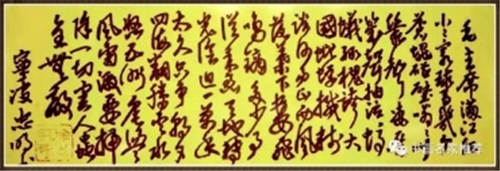 毛主席满江红
小小寰球有几
苍蝇碰壁嗡嗡
叫几声凄厉
几声抽泣蚂
蚁缘槐夸大
国蚍蜉撼树
谈何易正西风
落叶下长安飞
鸣镝多少事
从来急天地转
光阴迫一万年
太久只争朝夕
四海翻腾云水
怒五洲震荡
风雷激要扫
除一切害人虫
全无敌